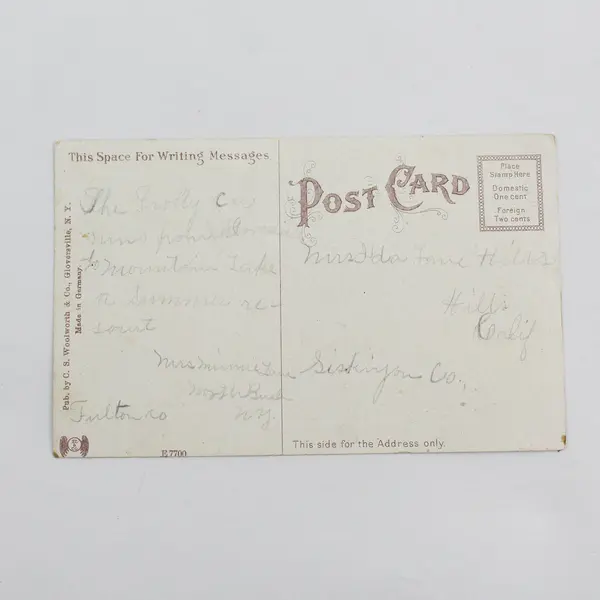 This Space For Writing Messages
POST CARD
Place
Stamp Here
Domestic
One cent
Foreign
Two cents
Pub. by C. S. Woolworth & Co., Gloversville, N. Y.
Made in Germany.
The
runs
to Mountain Lake
a Summer re-
sourt
Mrs Minnie
North Bush
Fulton co N.Y.
Mrs Ida Hills
Hills
Calif
Siskiyou Co.,
This side for the Address only.
E 7700